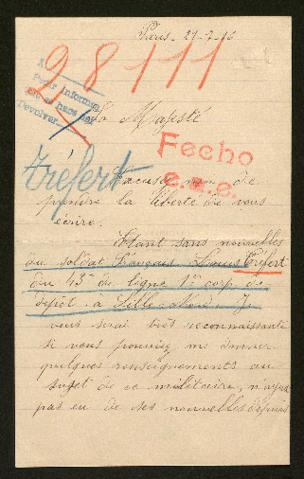 Paris - 27-7-16
28111
Pour Informe
Devolver
Sa Majesté
Fecho
e.x.e.
Tréfert
Excusez moi de
prendre la liberté de vous
écrire.
Etant sans nouvelles
du soldat François Louis Tréfert
du 43e de ligne 1er corp. de
dépôt à Lille. Nord. Je
vous serai très reconnaissante
si vous pouviez me donner
quelques renseignements au
sujet de ce militaire, n'ayant
pas eu de ses nouvelles depuis